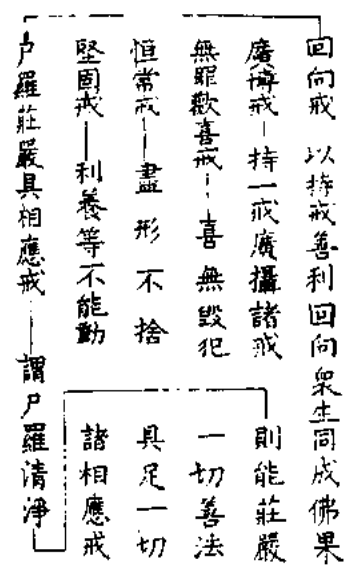 回向戒　以持戒善利回向衆生同成佛果
廣博戒—持一戒廣攝諸戒
無罪歡喜戒—喜無毀犯
恒常戒—盡形不捨
堅固戒—利養等不能動
尸羅莊嚴具相應戒—謂尸羅清淨
則能莊嚴
一切善法
具足一切
諸相應戒